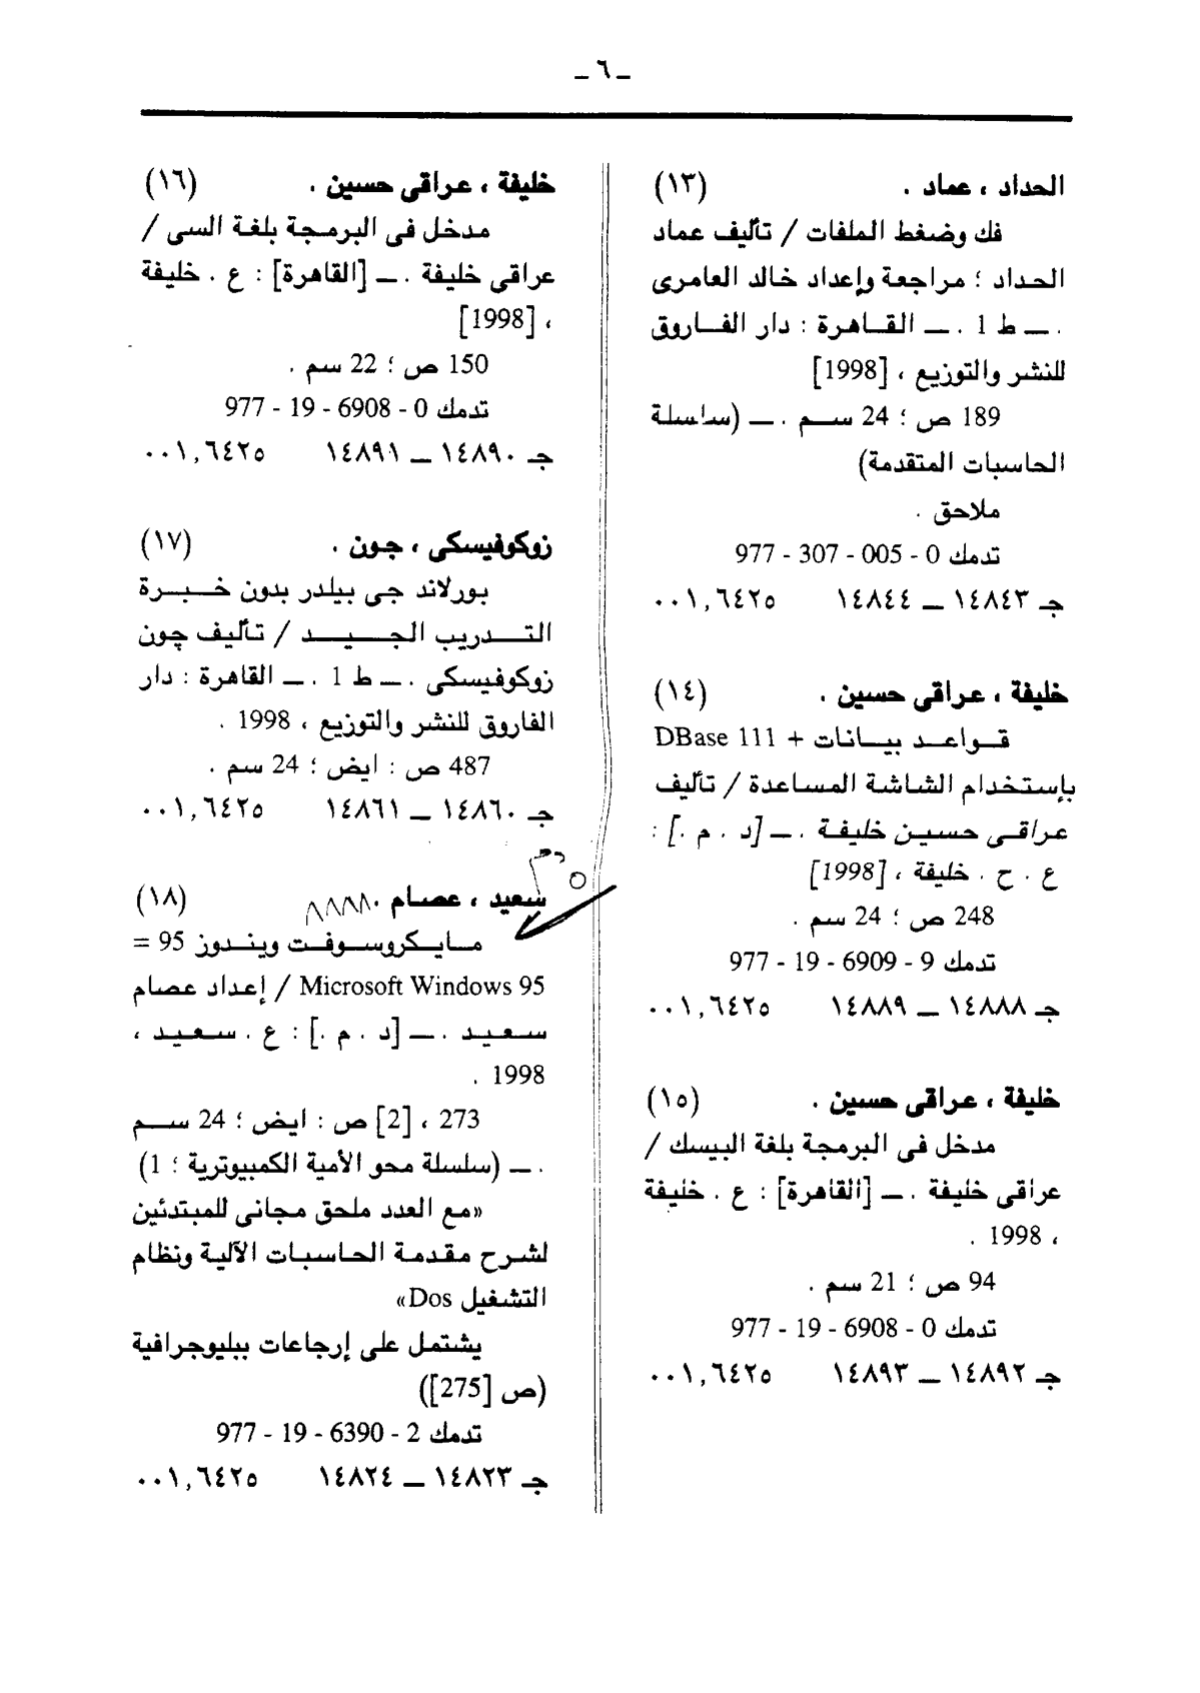 ـ ٦ ـ
الحداد ، عماد . (١٣)
فك وضغط الملفات / تأليف عماد
الحداد ؛ مراجعة وإعداد خالد العامرى
. ـ ط 1 . ـ القاهرة : دار الفاروق
للنشر والتوزيع ، [1998]
189 ص ؛ 24 سم . ـ (سلسلة
الحاسبات المتقدمة)
ملاحق .
تدمك 0 - 005 - 307 - 977
جـ ١٤٨٤٣ ـ ١٤٨٤٤ ٠٠١,٦٤٢٥
خليفة ، عراقى حسين . (١٤)
قواعد بيانات + DBase 111
بإستخدام الشاشة المساعدة / تأليف
عراقى حسين خليفة . ـ [د . م .] :
ع . ح . خليفة ، [1998]
248 ص ؛ 24 سم .
تدمك 9 - 6909 - 19 - 977
جـ ١٤٨٨٨ ـ ١٤٨٨٩ ٠٠١,٦٤٢٥
خليفة ، عراقى حسين . (١٥)
مدخل فى البرمجة بلغة البيسك /
عراقى خليفة . ـ [القاهرة] : ع . خليفة
، 1998 .
94 ص ؛ 21 سم .
تدمك 0 - 6908 - 19 - 977
جـ ١٤٨٩٢ ـ ١٤٨٩٣ ٠٠١,٦٤٢٥
خليفة ، عراقى حسين . (١٦)
مدخل فى البرمجة بلغة السى /
عراقى خليفة . ـ [القاهرة] : ع . خليفة
، [1998]
150 ص ؛ 22 سم .
تدمك 0 - 6908 - 19 - 977
جـ ١٤٨٩٠ ـ ١٤٨٩١ ٠٠١,٦٤٢٥
زوكوفيسكى ، جون . (١٧)
بورلاند جى بيلدر بدون خبرة
التدريب الجيد / تأليف چون
زوكوفيسكى . ـ ط 1 . ـ القاهرة : دار
الفاروق للنشر والتوزيع ، 1998 .
487 ص : ايض ؛ 24 سم .
جـ ١٤٨٦٠ ـ ١٤٨٦١ ٠٠١,٦٤٢٥
سعيد ، عصام . (١٨)
مايكروسوفت ويندوز 95 =
Microsoft Windows 95 / إعداد عصام
سعيد . ـ [د . م .] : ع . سعيد ،
1998 .
273 ، [2] ص : ايض ؛ 24 سم
. ـ (سلسلة محو الأمية الكمبيوترية ؛ 1)
«مع العدد ملحق مجانى للمبتدئين
لشرح مقدمة الحاسبات الآلية ونظام
التشغيل Dos»
يشتمل على إرجاعات ببليوجرافية
(ص [275])
تدمك 2 - 6390 - 19 - 977
جـ ١٤٨٢٣ ـ ١٤٨٢٤ ٠٠١,٦٤٢٥